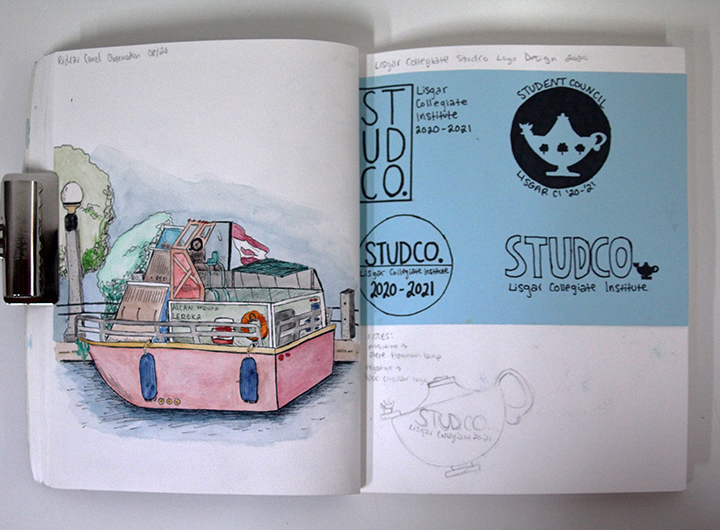 Rideau Canal Observation 08/20
ALCAN
EREKA
Lisgar Collegiate StudCo Logo Design 2020
ST
UD
CO.
Lisgar
Collegiate
Institute
2020-2021
STUDENT COUNCIL
LISGAR CI '20-'21
STUDCO.
Lisgar Collegiate Institute
2020-2021
STUDCO
Lisgar Collegiate Institute
NOTES:
STUDCO.
Lisgar Collegiate 20-21